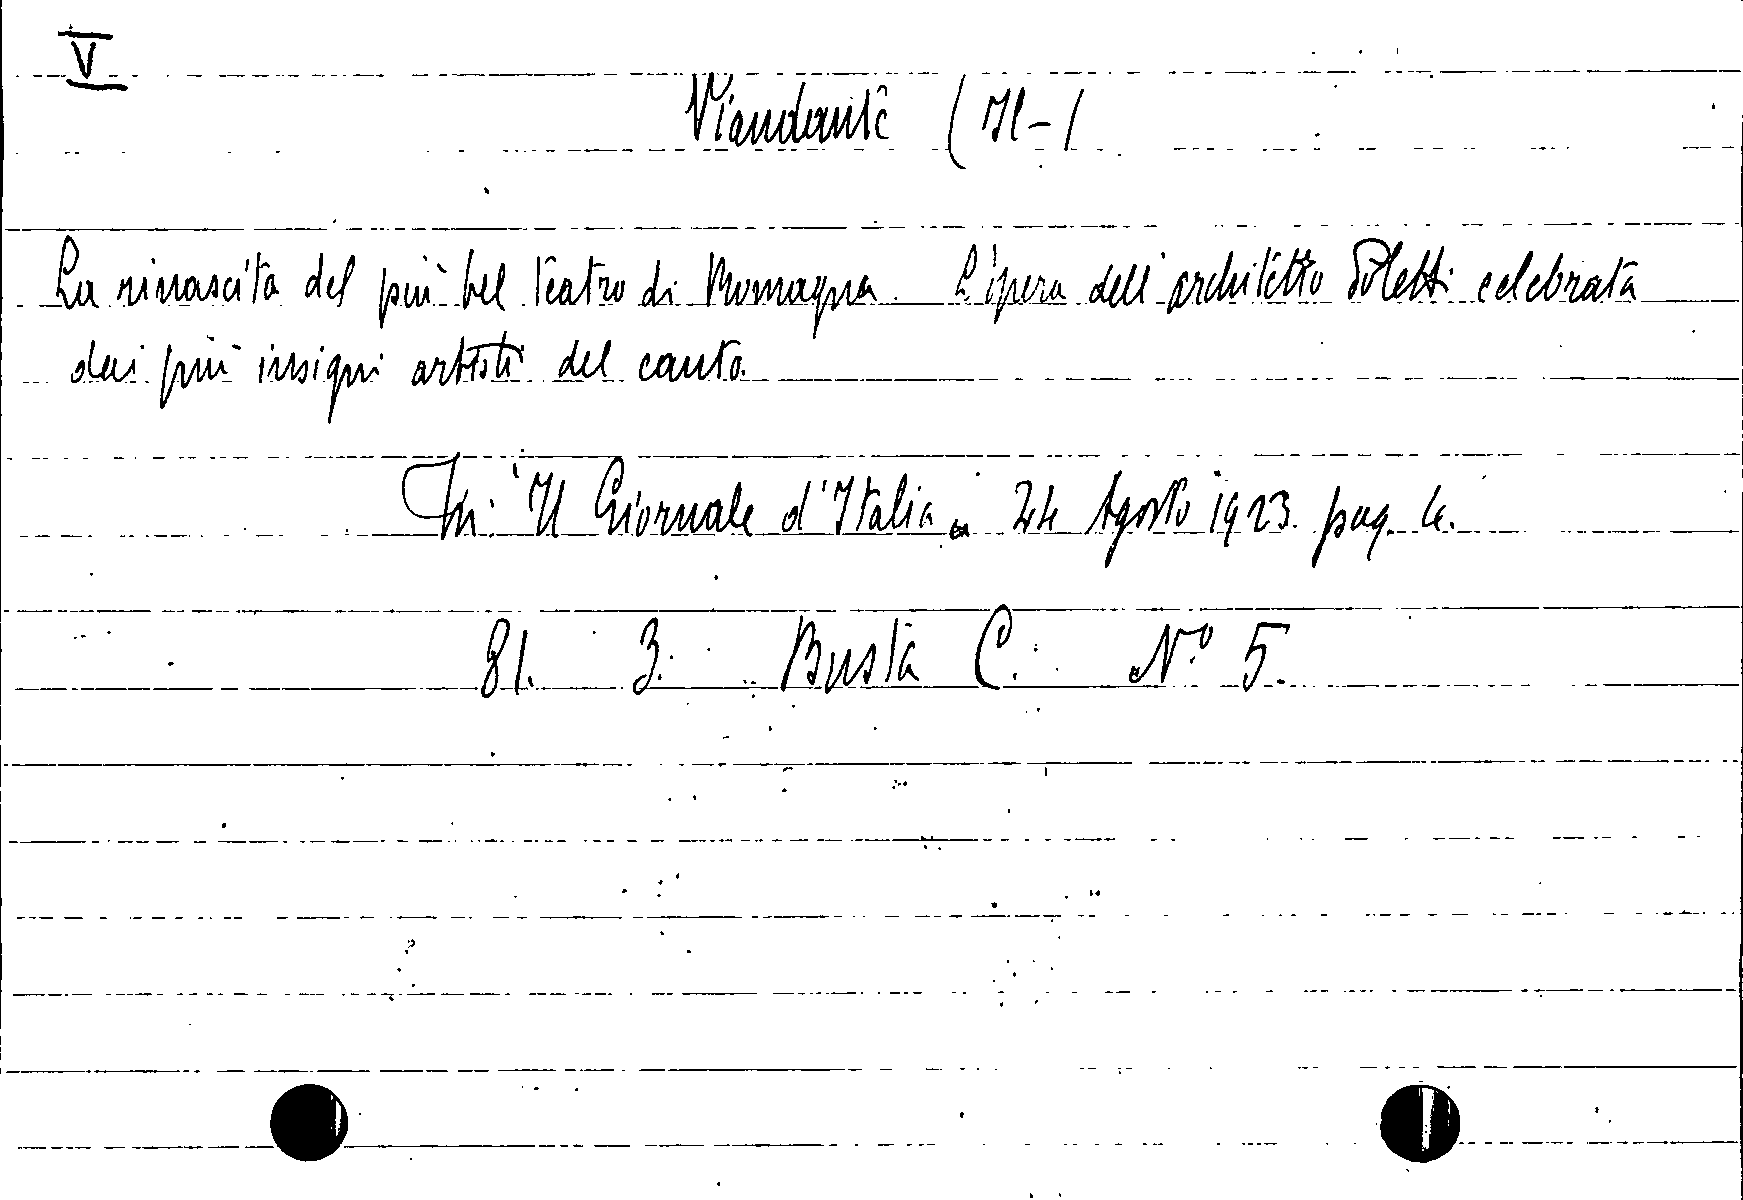 V
Viandante (Il-)
La rinascita del più bel teatro di Romagna. L'opera dell'architetto Poletti celebrata
dai più insigni artisti del canto.
In: "Il Giornale d'Italia" 24 Agosto 1923. pag. 4.
81. 3. Busta C. N.º 5.